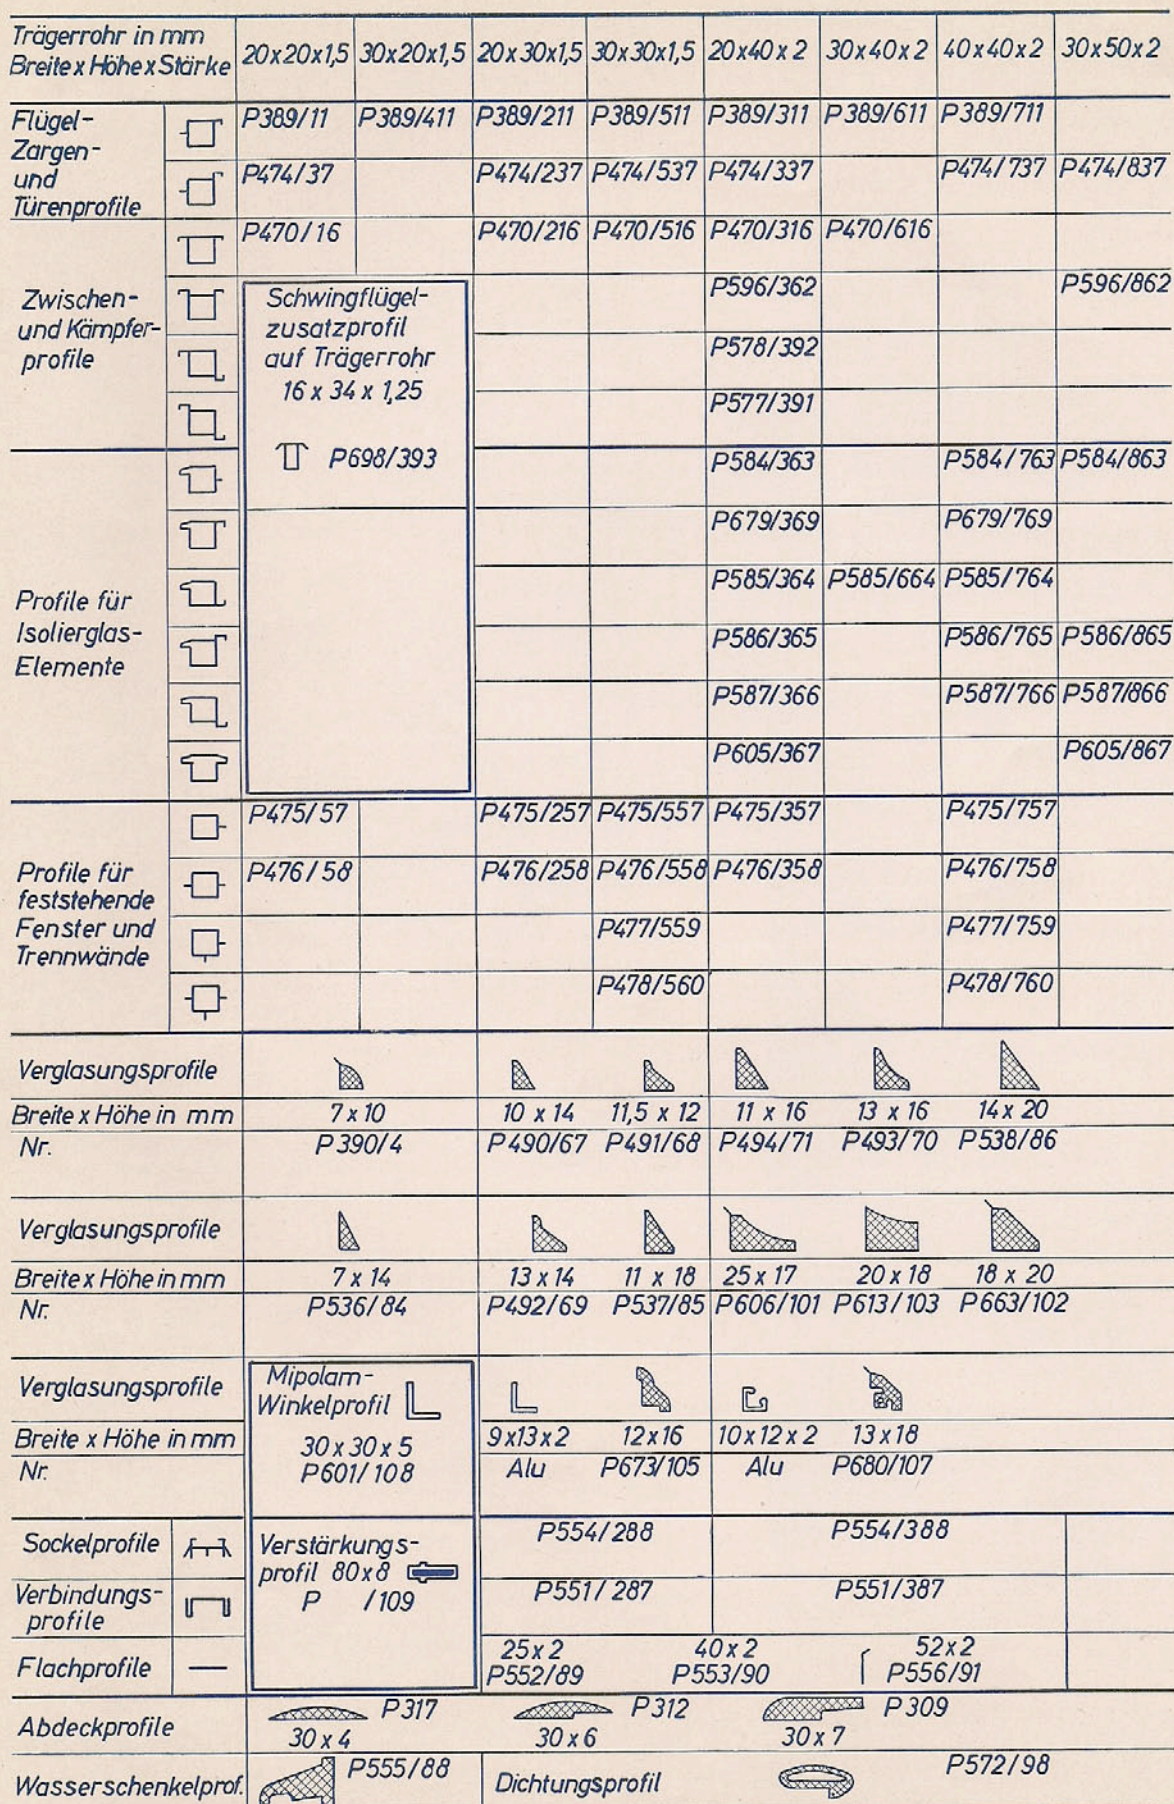 Trägerrohr in mm
Breite x Höhe x Stärke 20x20x1,5 30x20x1,5 20x30x1,5 30x30x1,5 20x40x2 30x40x2 40x40x2 30x50x2
Flügel-
Zargen-
und
Türenprofile
P389/11 P389/411 P389/211 P389/511 P389/311 P389/611 P389/711
P474/37 P474/237 P474/537 P474/337 P474/737 P474/837
P470/16 P470/216 P470/516 P470/316 P470/616
Zwischen-
und Kämpfer-
profile
Schwingflügel-
zusatzprofil
auf Trägerrohr
16 x 34 x 1,25
P698/393
P596/362 P596/862
P578/392
P577/391
Profile für
Isolierglas-
Elemente
P584/363 P584/763 P584/863
P679/369 P679/769
P585/364 P585/664 P585/764
P586/365 P586/765 P586/865
P587/366 P587/766 P587/866
P605/367 P605/867
Profile für
feststehende
Fenster und
Trennwände
P475/57 P475/257 P475/557 P475/357 P475/757
P476/58 P476/258 P476/558 P476/358 P476/758
P477/559 P477/759
P478/560 P478/760
Verglasungsprofile
Breite x Höhe in mm 7 x 10 10 x 14 11,5 x 12 11 x 16 13 x 16 14 x 20
Nr. P390/4 P490/67 P491/68 P494/71 P493/70 P538/86
Verglasungsprofile
Breite x Höhe in mm 7 x 14 13 x 14 11 x 18 25 x 17 20 x 18 18 x 20
Nr. P536/84 P492/69 P537/85 P606/101 P613/103 P663/102
Verglasungsprofile
Mipolam-
Winkelprofil
30 x 30 x 5
P601/108
Breite x Höhe in mm 9x13x2 12x16 10x12x2 13x18
Nr. Alu P673/105 Alu P680/107
Sockelprofile
Verstärkungs-
profil 80x8
P /109
P554/288 P554/388
Verbindungs-
profile
P551/287 P551/387
Flachprofile
25x2 40x2 52x2
P552/89 P553/90 P556/91
Abdeckprofile P317 P312 P309
30 x 4 30 x 6 30 x 7
Wasserschenkelprof. P555/88 Dichtungsprofil P572/98